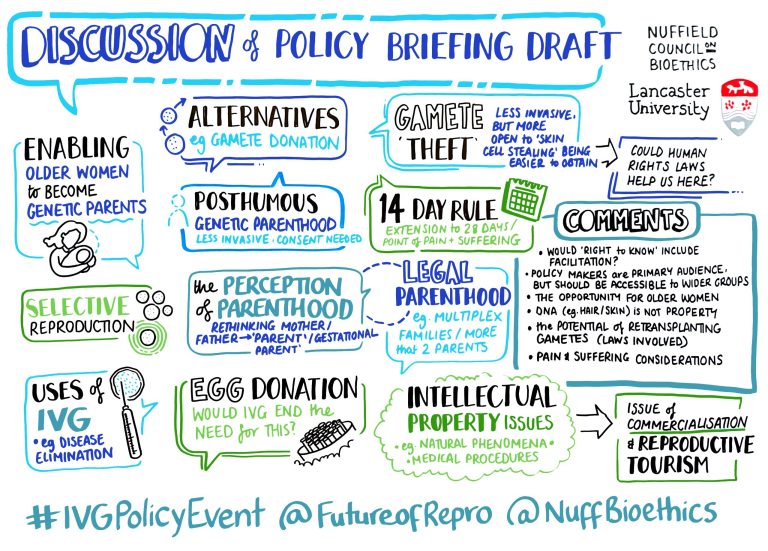 DISCUSSION of POLICY BRIEFING DRAFT
NUFFIELD
COUNCIL on
BIOETHICS
Lancaster
University
ENABLING
OLDER WOMEN
to BECOME
GENETIC PARENTS
ALTERNATIVES
eg GAMETE DONATION
GAMETE
'THEFT'
LESS INVASIVE,
BUT MORE
OPEN to 'SKIN
CELL STEALING' BEING
EASIER to OBTAIN
COULD HUMAN
RIGHTS LAWS
HELP US HERE?
POSTHUMOUS
GENETIC PARENTHOOD
LESS INVASIVE. CONSENT NEEDED
14 DAY RULE
EXTENSION to 28 DAYS/
POINT of PAIN + SUFFERING
COMMENTS
• WOULD 'RIGHT to KNOW' INCLUDE
FACILITATION?
• POLICY MAKERS are PRIMARY AUDIENCE,
BUT SHOULD BE ACCESSIBLE to WIDER GROUPS
• THE OPPORTUNITY FOR OLDER WOMEN
• DNA (eg. HAIR/SKIN) IS NOT PROPERTY
• the POTENTIAL OF RETRANSPLANTING
GAMETES (LAWS INVOLVED)
• PAIN & SUFFERING CONSIDERATIONS
SELECTIVE
REPRODUCTION
the PERCEPTION
of PARENTHOOD
RETHINKING MOTHER/
FATHER → 'PARENT'/GESTATIONAL
PARENT'
LEGAL
PARENTHOOD
eg. MULTIPLEX
FAMILIES / MORE
that 2 PARENTS
USES of
IVG
• eg DISEASE
ELIMINATION
EGG DONATION
WOULD IVG END the
NEED for THIS?
INTELLECTUAL
PROPERTY ISSUES
• eg. NATURAL PHENOMENA •
• MEDICAL PROCEDURES
ISSUE of
COMMERCIALISATION
& REPRODUCTIVE
TOURISM
#IVGPolicyEvent @FutureofRepro @NuffBioethics